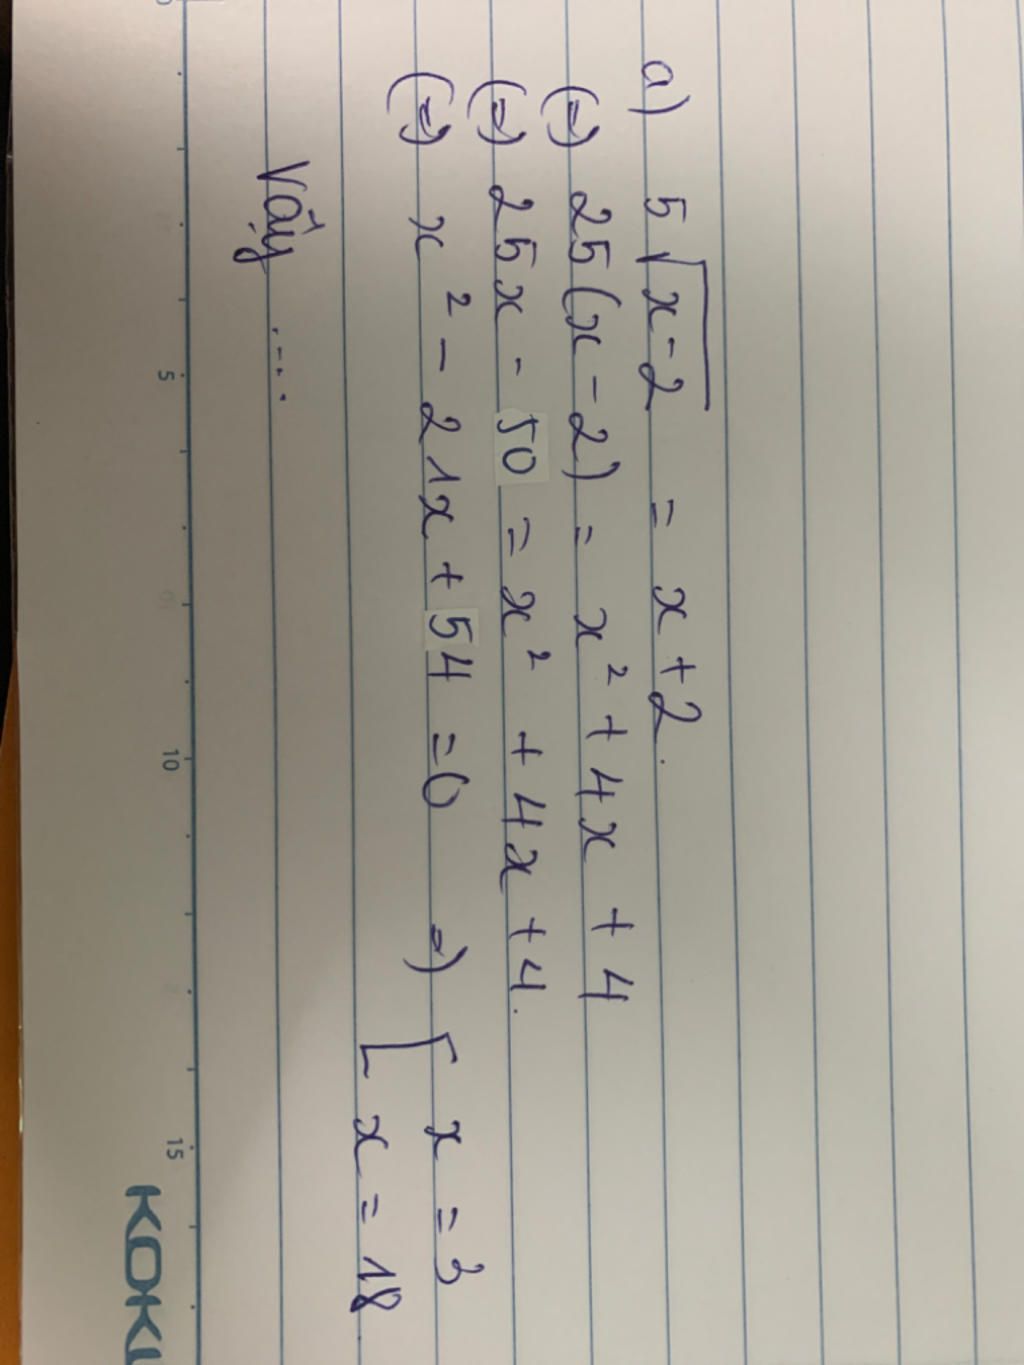 a) 5√x-2 = x+2.
(=) 25(x-2) = x² + 4x + 4
(=) 25x - 50 = x² + 4x + 4.
(=) x² - 21x + 54 = 0 =) [ x = 3
x = 18
Vậy ....
5 10 15